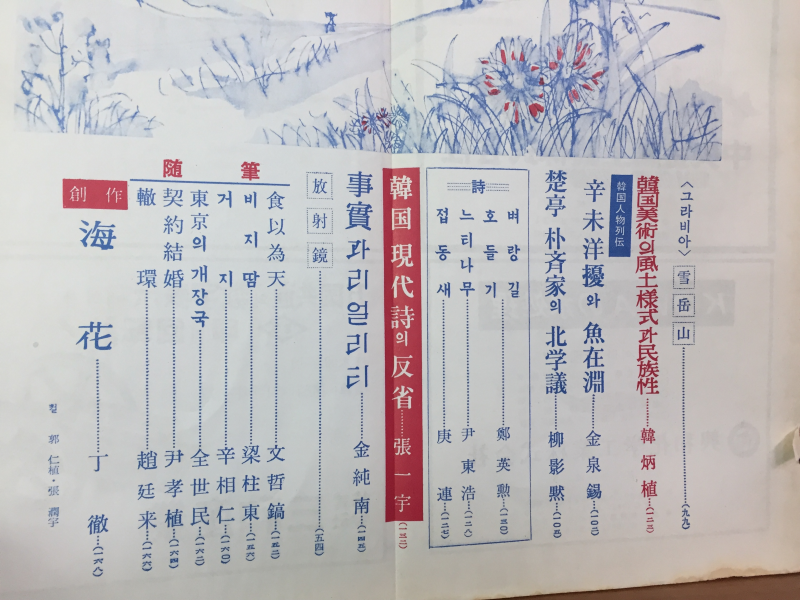 〈그라비아〉 雪岳山……(九九)
韓国美術의 風土様式과 民族性……韓炳植(一二三)
韓国人物列伝
辛未洋擾와 魚在淵……金泉錫(一〇二)
楚亭 朴斉家의 北学議……柳影黙(一〇五)
詩
벼랑길……鄭英勲(一三〇)
호들기
느티나무……尹東浩(一二八)
접동새……庚連(一二七)
韓国 現代詩의 反省……張一宇(一三二)
事實과 리얼리티……金純南(一四五)
放射鏡……(五四)
随筆
食以為天……文哲鎬(一五二)
비지땀……梁柱東(一五六)
거지……辛相仁(一六〇)
東京의 개장국……全世民(一六二)
契約結婚……尹孝植(一六四)
轍環……趙廷来(一六六)
創作
海花……丁徹(一六八)
郭仁植・張潤宇